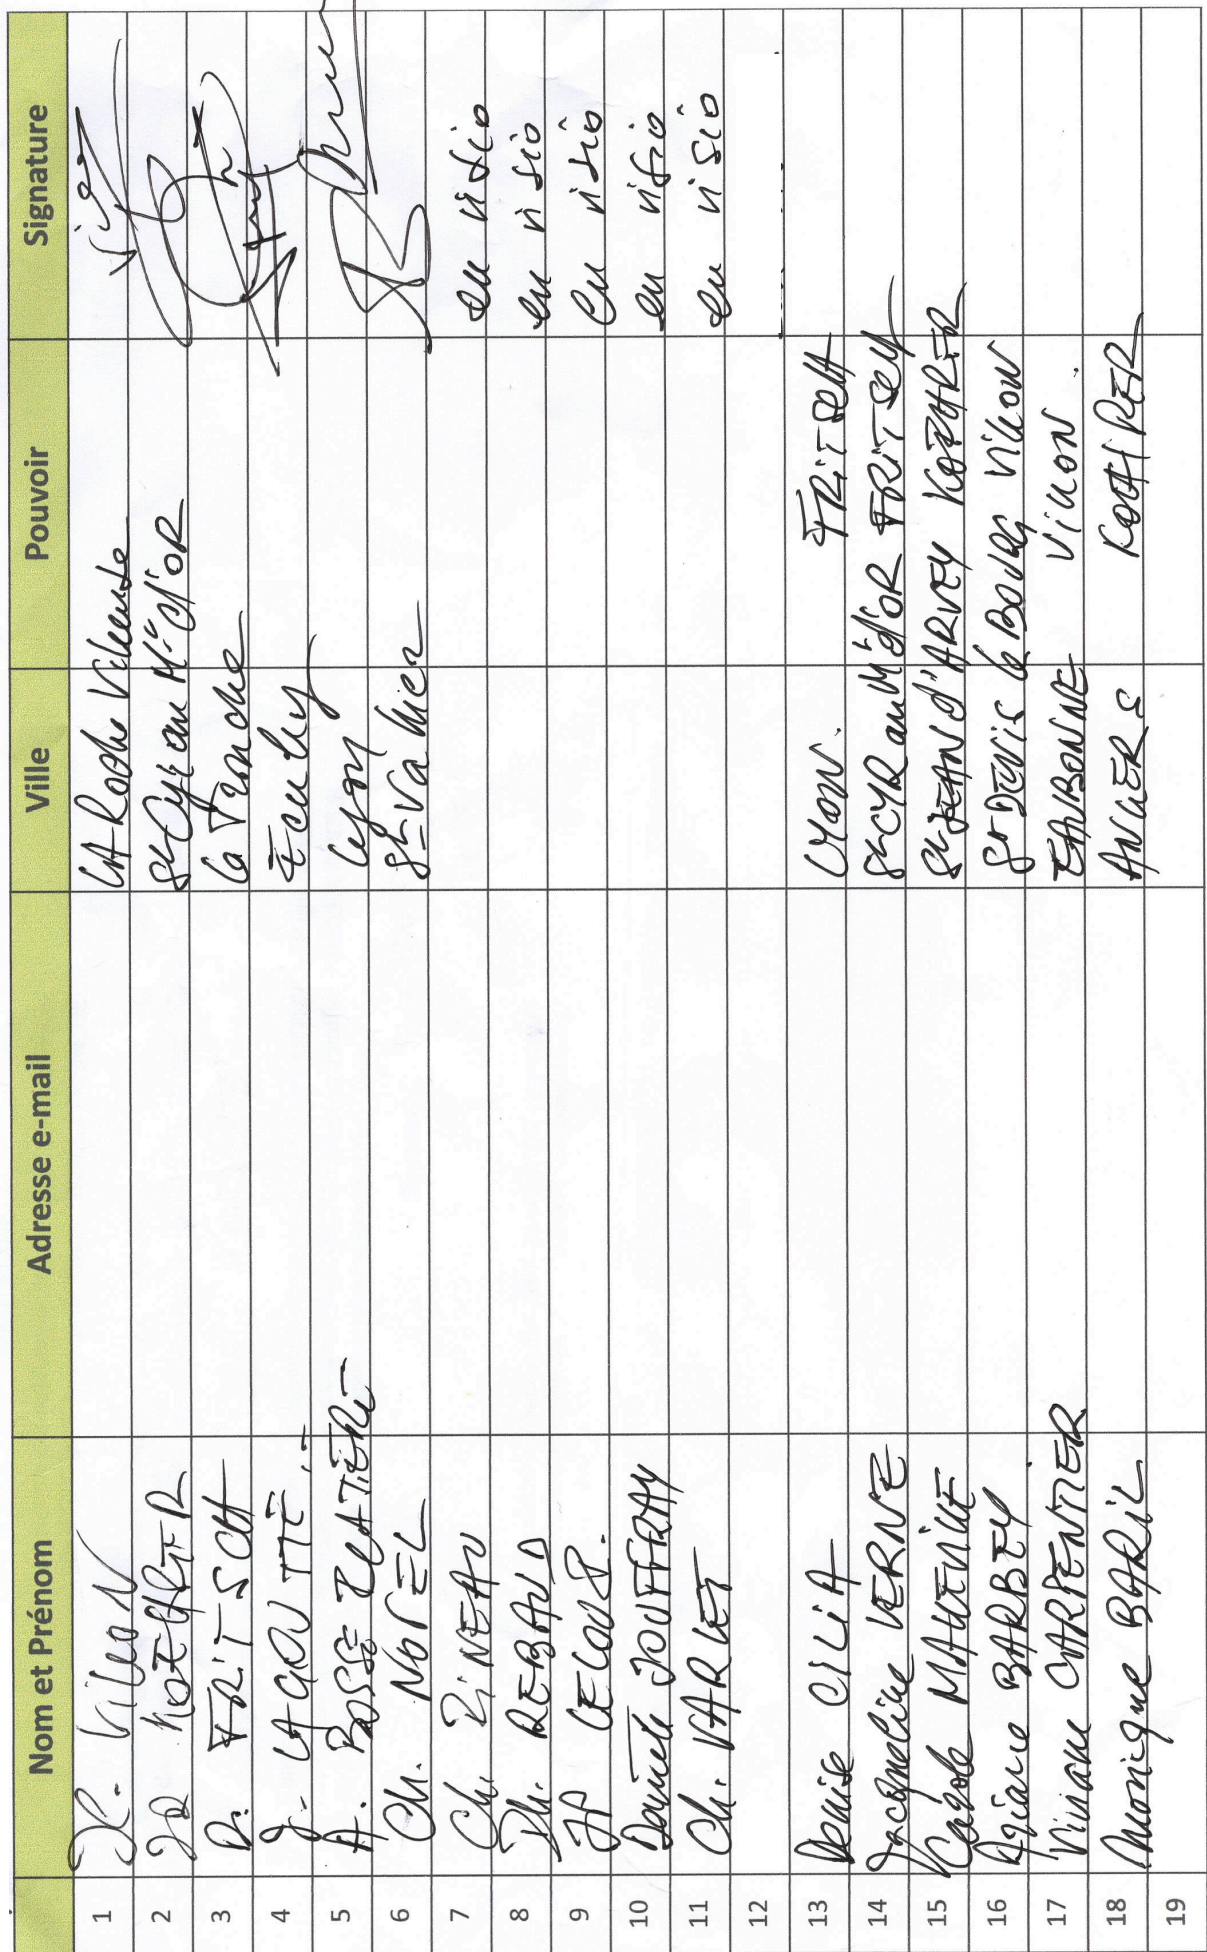 Nom et Prénom Adresse e-mail Ville Pouvoir Signature
1 VILLON LA Roche Vineuse
2 St Cyr au Mt d'OR
3 D. FRITSCH la Tronche
4 J. Ecully
5 A. Lyon
6 Ch. NOVEL St Vallier
7 Ch. PINEAU en visio
8 Ph. REBAUD en visio
9 JP en visio
10 Danièle JOUFFRAY en visio
11 Ch. VARLET en visio
12
13 Denise CILIA LYON. FRITSCH
14 Jacqueline VERNE St CYR au M d'OR FRITSCH
15 Carole St JEAN d'ARVEY
16 BARBEY St DENIS le BOURG VILLON
17 Viviane CARPENTIER EAUBONNE VILLON
18 Monique BARIL ANGERS
19